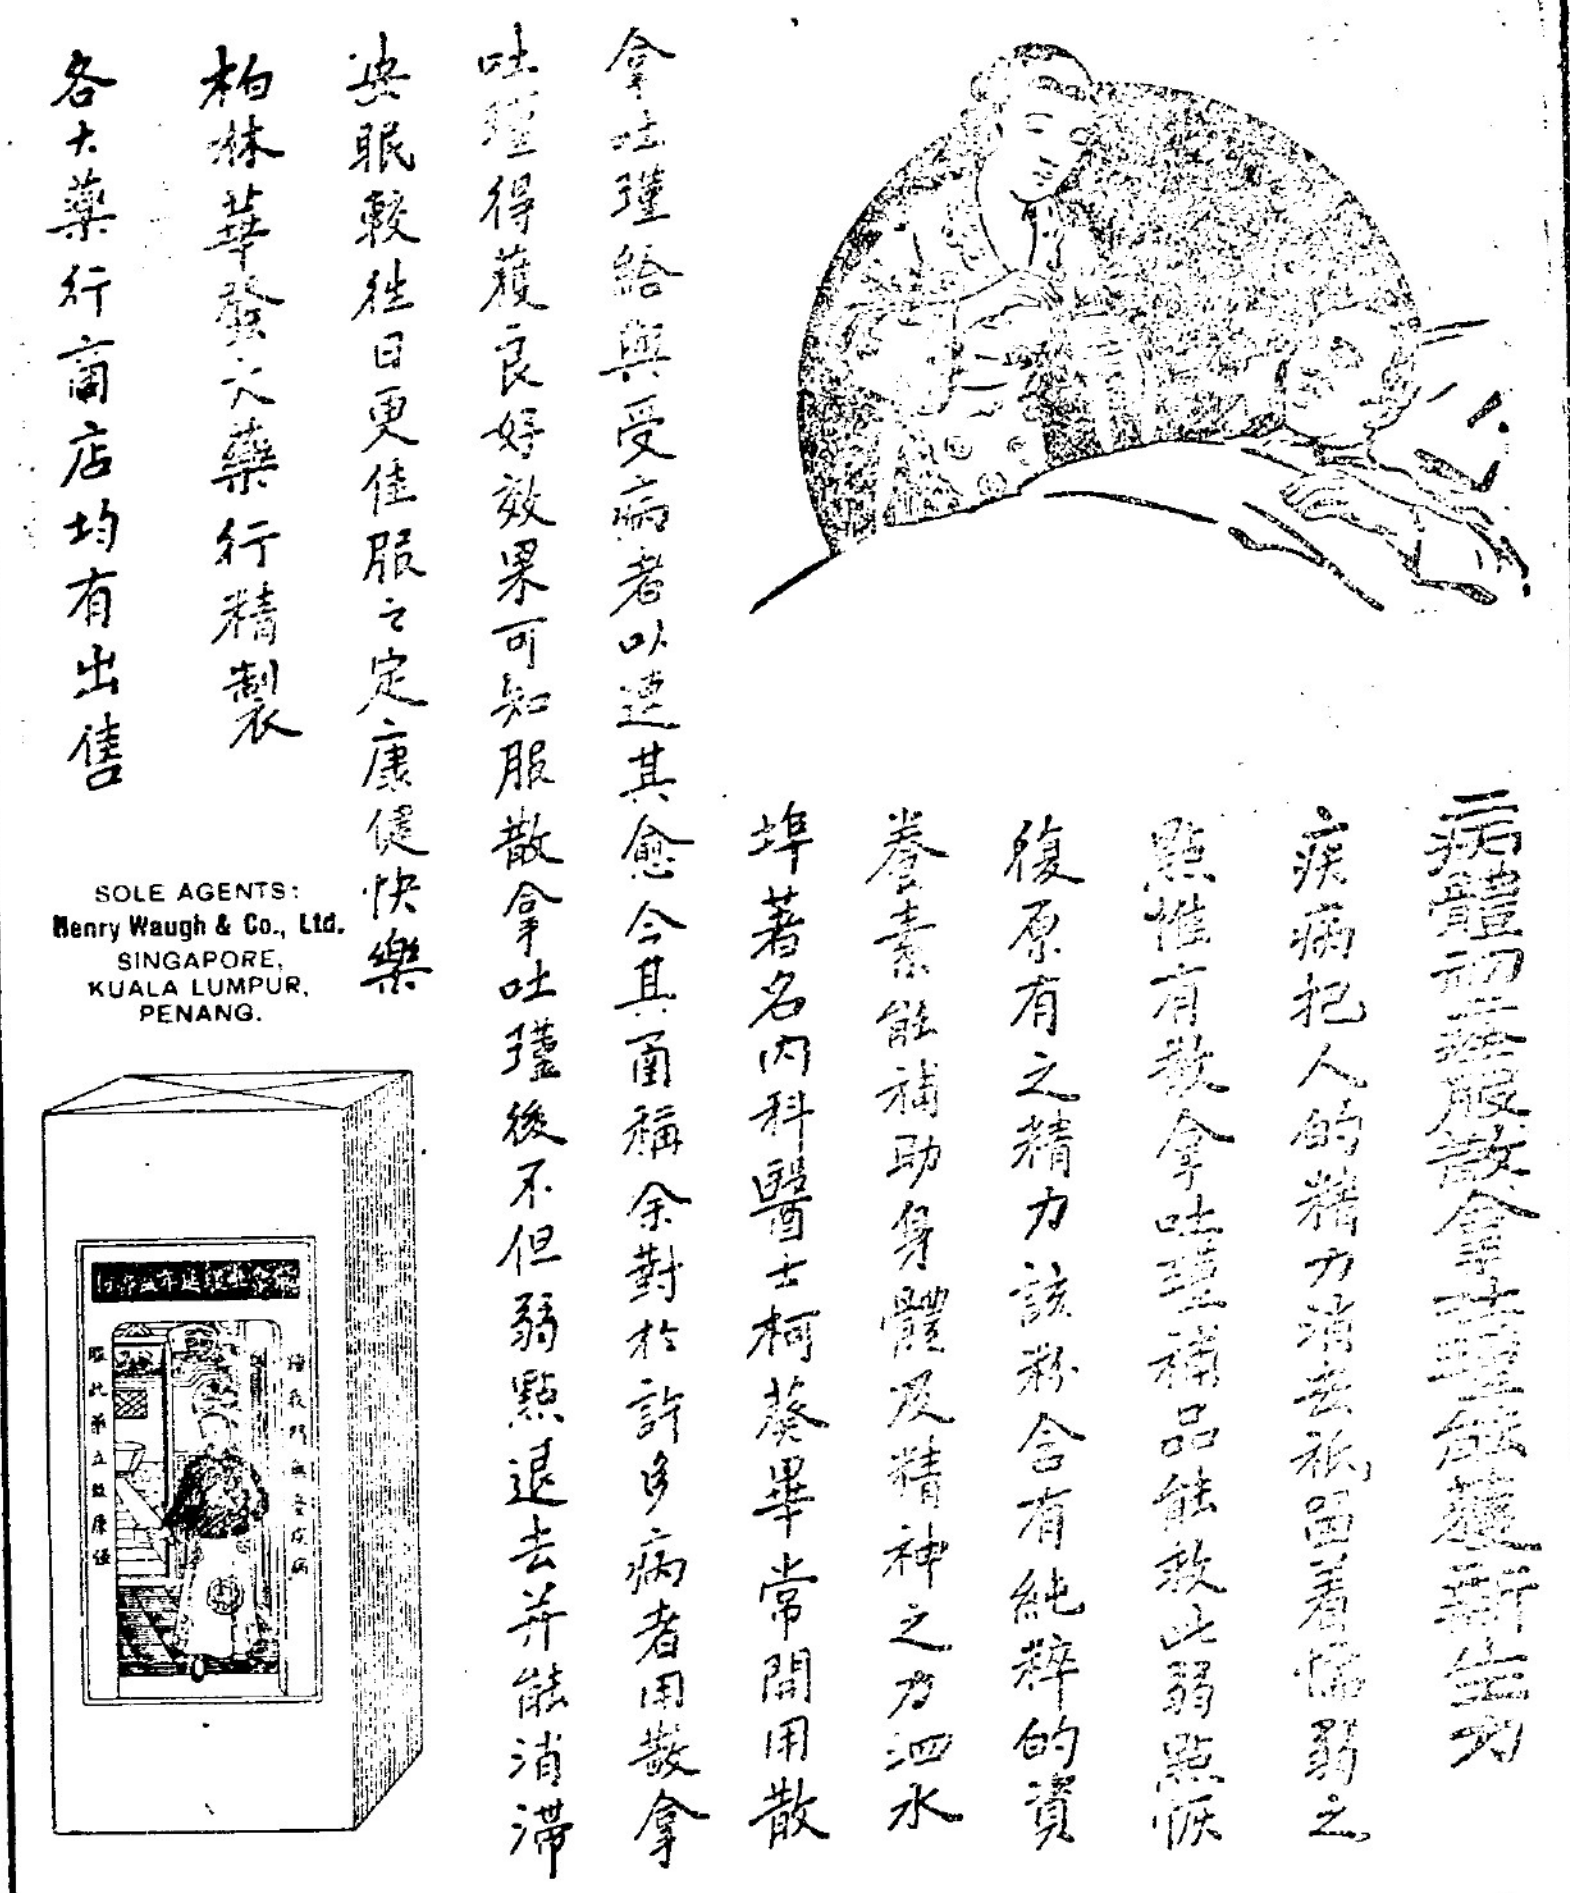 病體初愈服散拿吐瑾能獲新生力
疾病把人的精力消去祇留着懦弱之
點惟有散拿吐瑾補品能救此弱點恢
復原有之精力該粉含有純粹的資
養素能補助身體及精神之力泗水
埠著名內科醫士柯葵畢常開用散
拿吐瑾給與受病者以速其愈今其函稱余對於許多病者用散拿
吐瑾得獲良好效果可知服散拿吐瑾後不但弱點退去并能消滯
與眠較往日更佳服之定康健快樂
柏林華發大藥行精製
各大藥行商店均有出售
SOLE AGENTS:
Henry Waugh & Co., Ltd.
SINGAPORE,
KUALA LUMPUR,
PENANG.